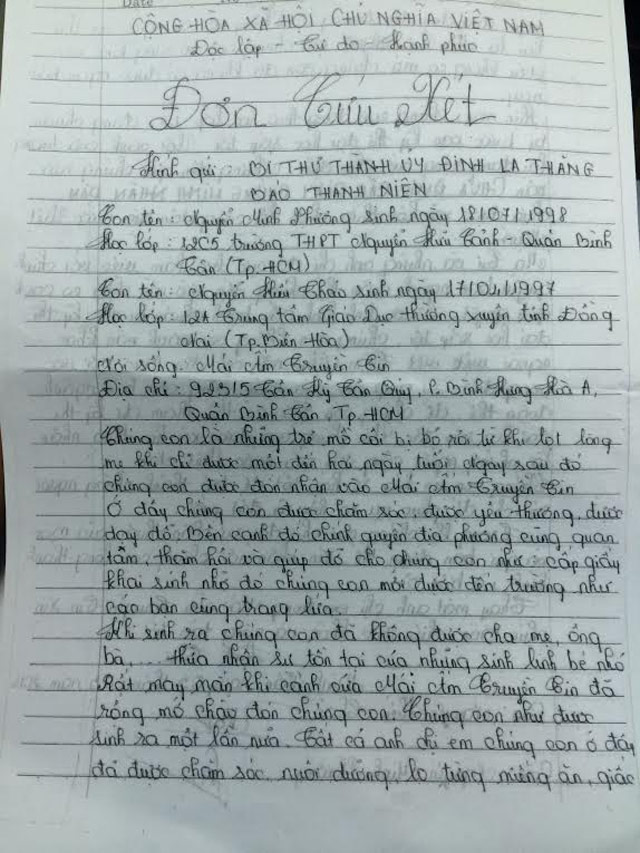 CỘNG HÒA XÃ HỘI CHỦ NGHĨA VIỆT NAM
Độc lập - Tự do - Hạnh phúc
Đơn Cứu Xét
Kính gửi : BÍ THƯ THÀNH ỦY ĐINH LA THĂNG
BÁO THANH NIÊN
Con tên : Nguyễn Minh Phương sinh ngày 18/07/1998
Học lớp : 12C5 trường THPT Nguyễn Hữu Cảnh - Quận Bình
Tân (Tp.HCM)
Con tên : Nguyễn Hữu Thao sinh ngày 17/01/1997
Học lớp : 12A Trung tâm Giáo Dục thường xuyên tỉnh Đồng
Nai (Tp.Biên Hòa)
Nơi sống : Mái Ấm Truyền Tin
Địa chỉ : 923/5 Tân Kỳ Tân Quý, P. Bình Hưng Hòa A,
Quận Bình Tân, Tp.HCM
Chúng con là những trẻ mồ côi bị bỏ rơi từ khi lọt lòng
mẹ khi chỉ được một đến hai ngày tuổi, ngay sau đó
chúng con được đón nhận vào Mái Ấm Truyền Tin
Ở đây chúng con được chăm sóc, được yêu thương, được
dạy dỗ. Bên cạnh đó chính quyền địa phương cũng quan
tâm, thăm hỏi và giúp đỡ cho chúng con như : cấp giấy
khai sinh nhờ đó chúng con mới được đến trường như
các bạn cùng trang lứa.
Khi sinh ra chúng con đã không được cha mẹ, ông
bà,... thừa nhận sự tồn tại của những sinh linh bé nhỏ
Rất may mắn khi cánh cửa Mái Ấm Truyền Tin đã
rộng mở chào đón chúng con. Chúng con như được
sinh ra một lần nữa. Tất cả anh chị em chúng con ở đây
đã được chăm sóc, nuôi dưỡng, lo từng miếng ăn, giấc